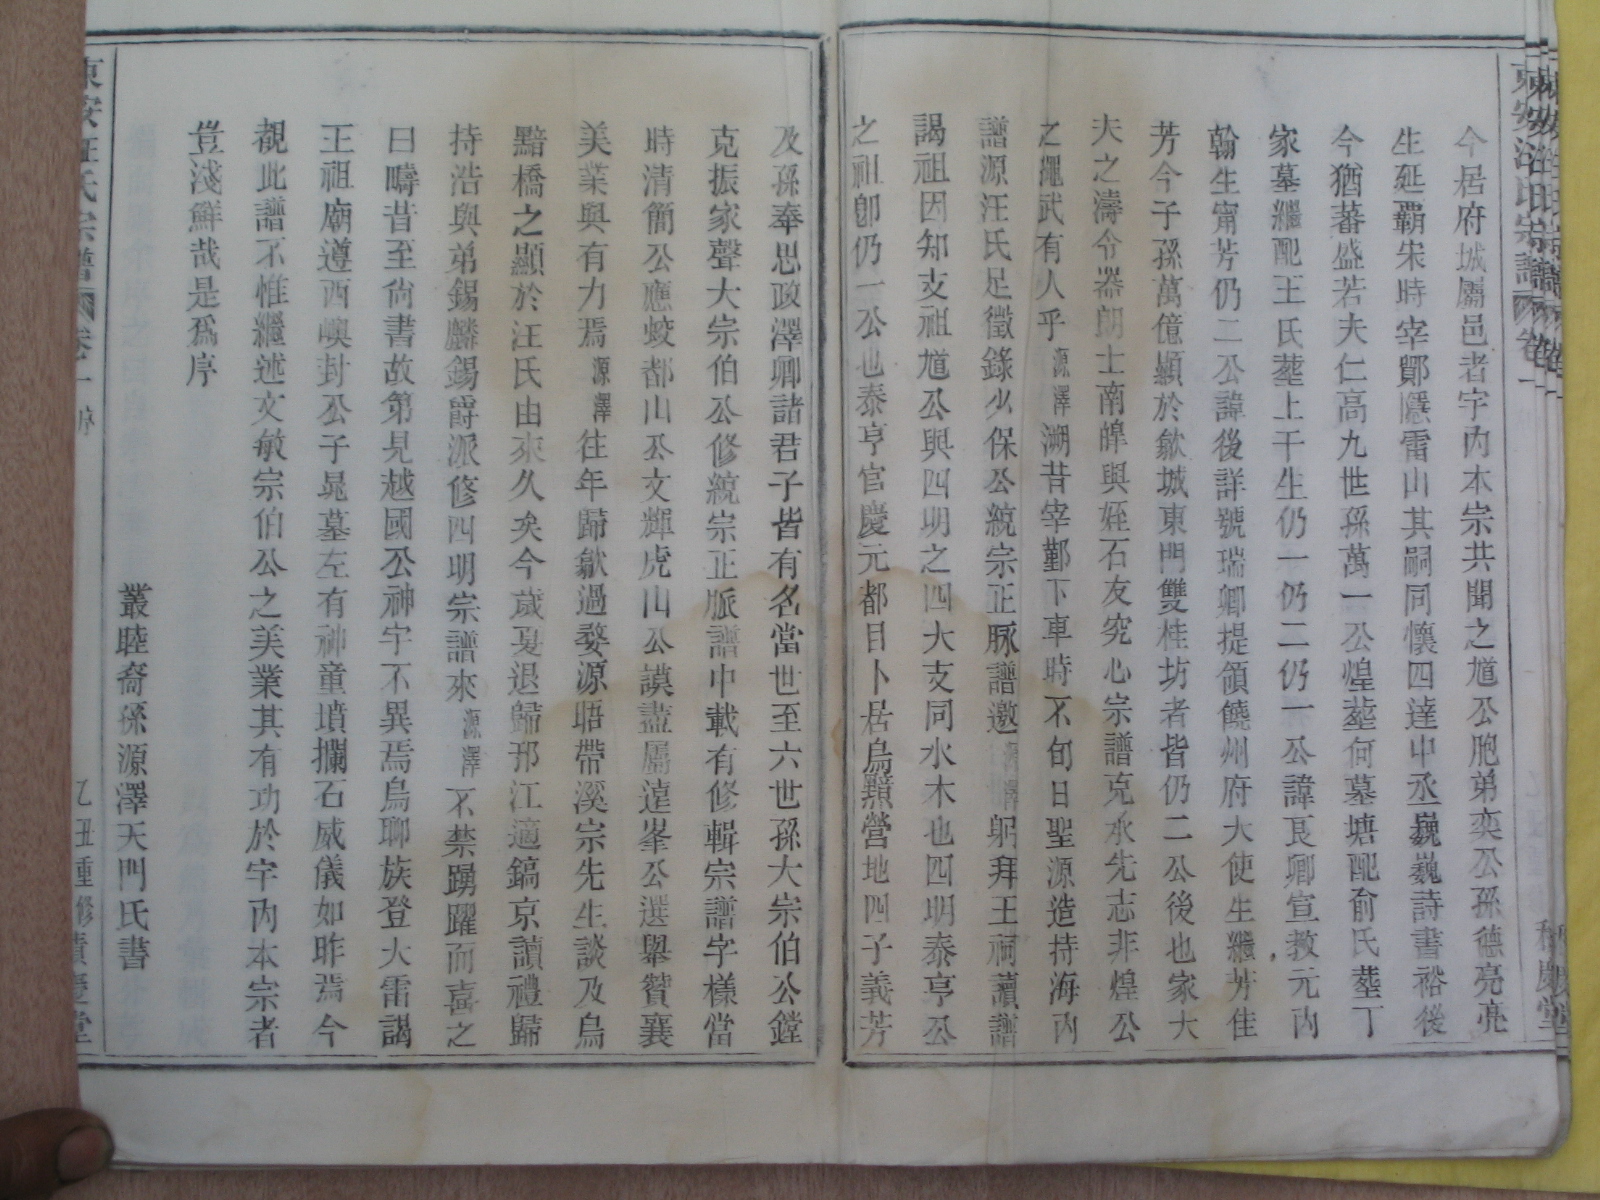 今居府城屬邑者宇內本宗共聞之馗公胞弟奕公孫德亮亮
生延覇宋時宰鄞隱雷山其嗣同懷四達中丞巍巍詩書裕後
今猶蕃盛若夫仁高九世孫萬一公煌塟何墓塘配俞氏塟丁
家墓繼配王氏塟上干生仍一仍二仍一公諱艮卿宣教元內
翰生甯芳仍二公諱後詳號瑞卿提領饒州府大使生繼芳佳
芳今子孫萬億顯於歙城東門雙桂坊者皆仍二公後也家大
夫之濤令器朗士南皥與姪石友究心宗譜克承先志非煌公
之繩武有人乎源澤溯昔宰鄞下車時不旬日聖源造持海內
譜源汪氏足徵錄少保公統宗正脉譜邀源澤躬拜王祠讀譜
謁祖因知支祖馗公與四明之四大支同水木也四明泰亨公
之祖卽仍一公也泰亨官慶元都目卜居烏顯營地四子義芳
及孫奉思政澤卿諸君子皆有名當世至六世孫大宗伯公鏜
克振家聲大宗伯公修統宗正脈譜中載有修輯宗譜字樣當
時清簡公應蛟都山公文輝虎山公謨盡屬逹峯公選舉贊襄
美業與有力焉源澤往年歸歙過婺源晤帶溪宗先生談及烏
黯橋之顯於汪氏由來久矣今歲夏退歸邗江適鎬京讀禮歸
持浩與弟錫麟錫爵派修四明宗譜來源澤不禁踴躍而喜之
曰疇昔至尙書故第見越國公神宇不異焉烏聊族登大雷謁
王祖廟遵西嶼封公子晁墓左有神童墳攔石威儀如昨焉今
覩此譜不惟繼述文敏宗伯公之美業其有功於宇內本宗者
豈淺鮮哉是爲序
叢睦裔孫源澤天門氏書
東安汪氏宗譜 卷一 序 乙丑重修 積慶堂